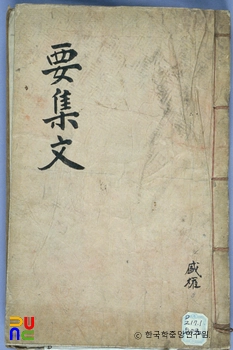 要集文
盛雄
ⓒ 한국학중앙연구원